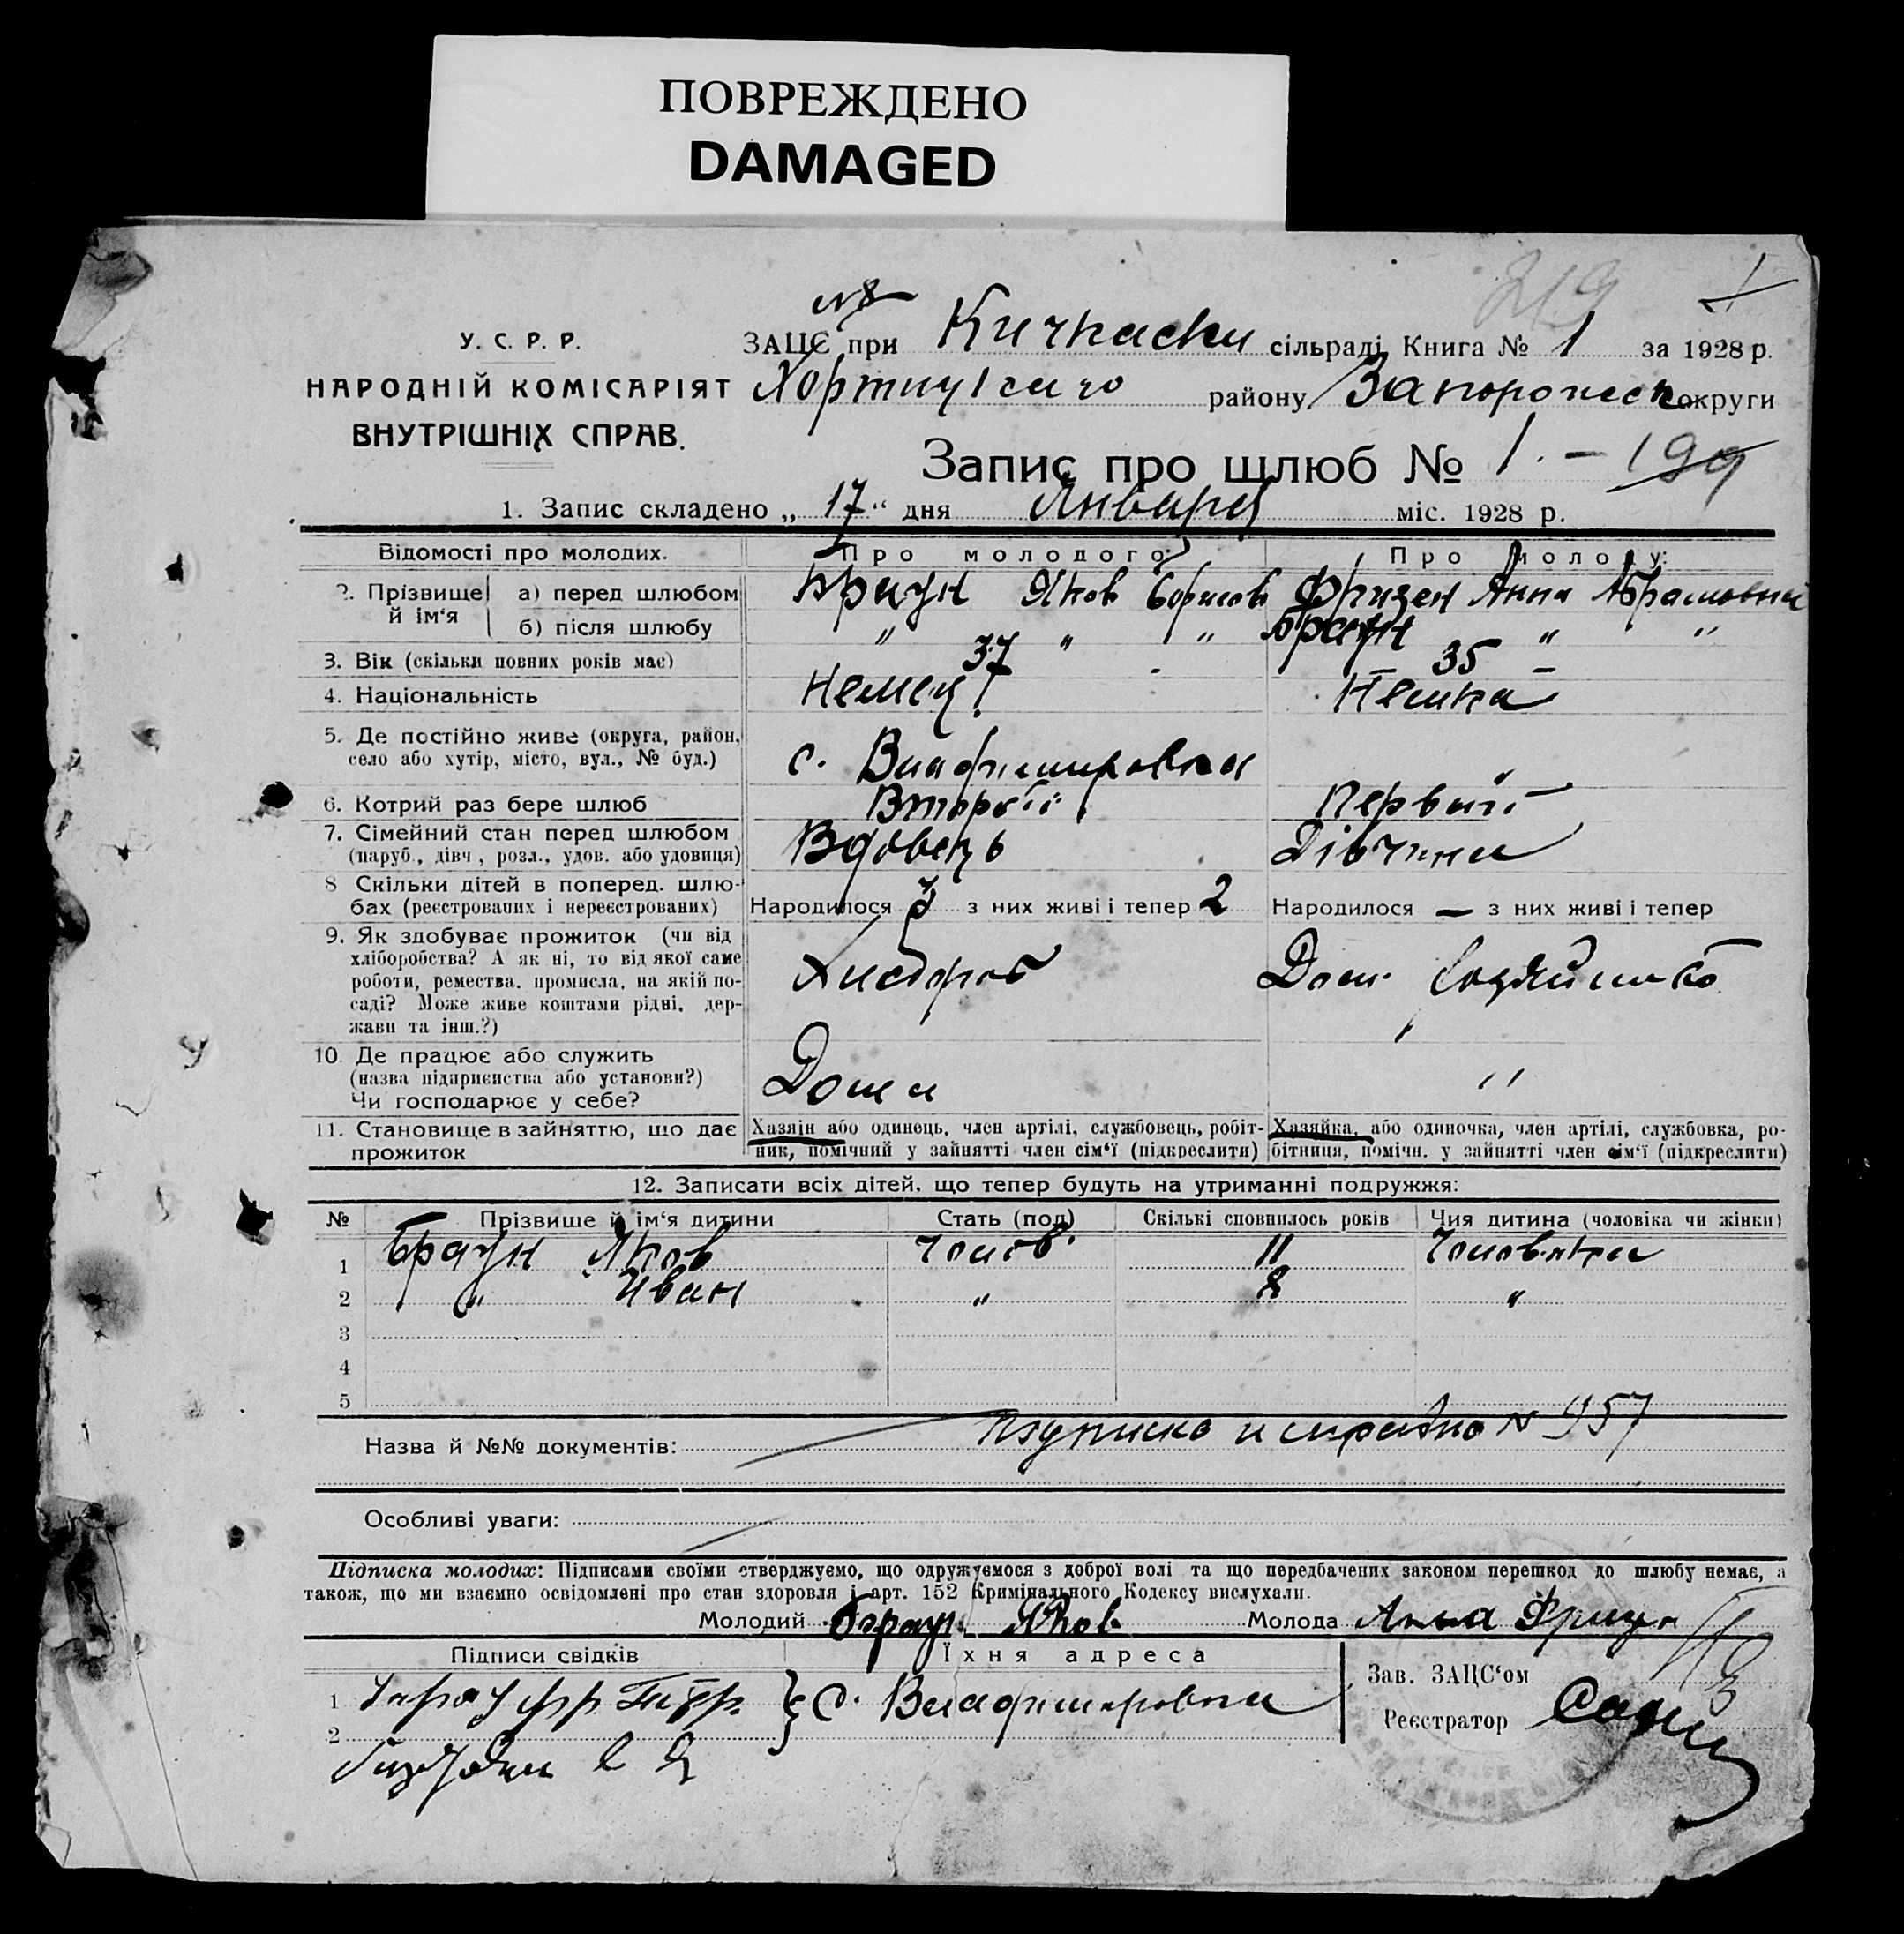 ПОВРЕЖДЕНО
DAMAGED
219
№8
У. С. Р. Р.
ЗАЦС при Кичкаски сільраді Книга № 1 за 1928 р.
НАРОДНІЙ КОМІСАРІЯТ
ВНУТРІШНІХ СПРАВ.
Хортицкаго району Запорожск округи
Запис про шлюб № 1. - 199
1. Запис складено „ 17 " дня Января міс. 1928 р.
Відомості про молодих. Про молодого: Про молоду:
2. Прізвище й ім'я а) перед шлюбом Браун Яков Борисов Фризен Анна Абрамовна
б) після шлюбу " " " Браун " "
3. Вік (скільки повних років має) 37 - 35 -
4. Національність Немец Немка
5. Де постійно живе (округа, район,
село або хутір, місто, вул., № буд.) с. Владимировка "
6. Котрий раз бере шлюб Второй Первый
7. Сімейний стан перед шлюбом
(паруб., дівч., розл., удов. або удовиця) Вдовець Дівчина
8 Скільки дітей в поперед. шлю-
бах (реєстрованих і нереєстрованих) Народилося 3 з них живі і тепер 2 Народилося — з них живі і тепер
9. Як здобуває прожиток (чи від
хліборобства? А як ні, то від якої саме
роботи, ремества, промисла, на якій по-
саді? Може живе коштами рідні, дер-
жави та інш.?) Хлебороб Дом. хозяйство
10. Де працює або служить
(назва підприємства або установи?)
Чи господарює у себе? Дома "
11. Становище в зайняттю, що дає
прожиток
Хазяїн або одинець, член артілі, службовець, робіт-
ник, помічний у зайнятті член сім'ї (підкреслити)
Хазяйка, або одиночка, член артілі, службовка, ро-
бітниця, помічн. у зайнятті член сім'ї (підкреслити)
12. Записати всіх дітей, що тепер будуть на утриманні подружжя:
№ Прізвище й ім'я дитини Стать (пол) Скількі сповнилось років Чия дитина (чоловіка чи жінки)
1 Браун Яков Чолов. 11 Чоловіка
2 " Иван " 8 "
3
4
5
Назва й №№ документів: Подписка и справка № 957
Особливі уваги:
Підписка молодих: Підписами своїми стверджуємо, що одружуємося з доброї волі та що передбачених законом перешкод до шлюбу немає, а
також, що ми взаємно освідомлені про стан здоровля і арт. 152 Кримінального Кодексу вислухали.
Молодий Браун Яков Молода Анна Фризен
Підписи свідків Їхня адреса
Зав. ЗАЦС'ом
1 } с. Владимировка
Реєстратор
2